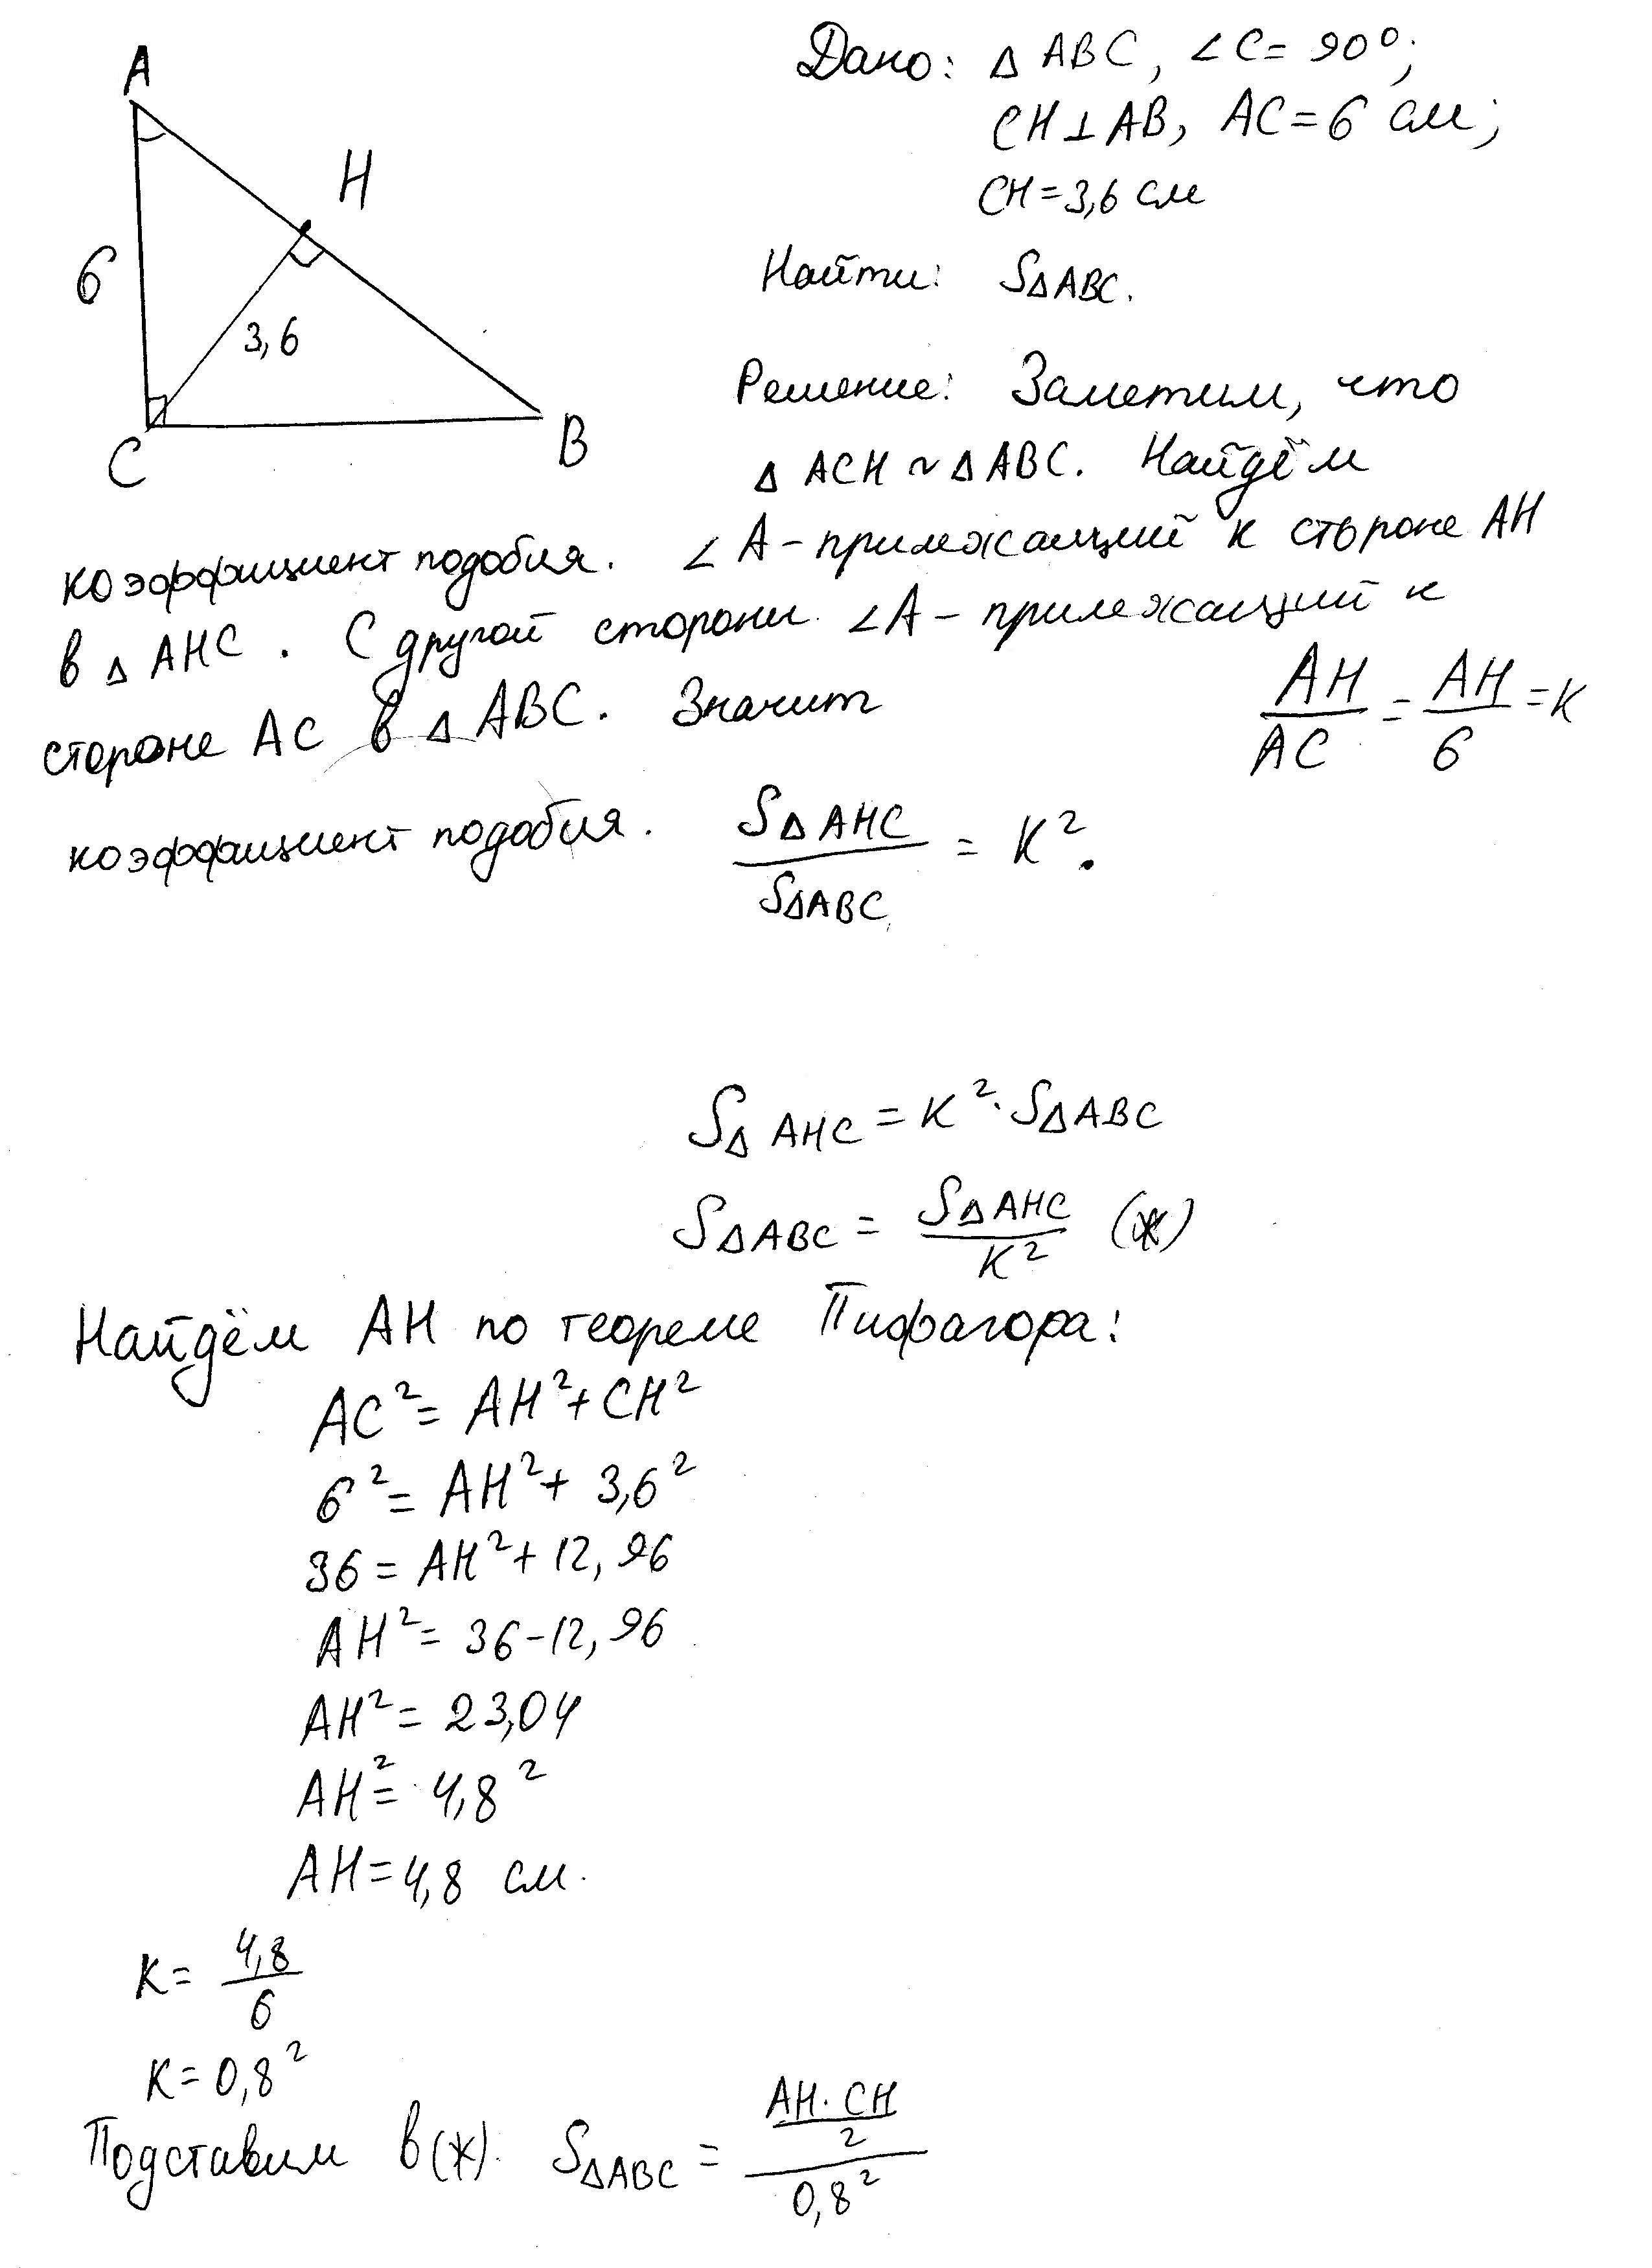 A
H
6
3,6
C
B
Дано: △ ABC, ∠C = 90°;
CH ⊥ AB, AC = 6 см;
CH = 3,6 см
Найти: S△ABC.
Решение: Заметим, что
△ ACH ~ △ ABC. Найдём
коэффициент подобия. ∠A - прилежащий к стороне AH
в △ AHC. С другой стороны ∠A - прилежащий к
стороне AC в △ ABC. Значит AH/AC = AH/6 = K
коэффициент подобия. S△AHC/S△ABC = K².
S△AHC = K² · S△ABC
S△ABC = S△AHC/K² (*)
Найдём AH по теореме Пифагора:
AC² = AH² + CH²
6² = AH² + 3,6²
36 = AH² + 12,96
AH² = 36 - 12,96
AH² = 23,04
AH² = 4,8²
AH = 4,8 см.
K = 4,8/6
K = 0,8²
Подставим в (*). S△ABC = (AH · CH/2)/0,8²